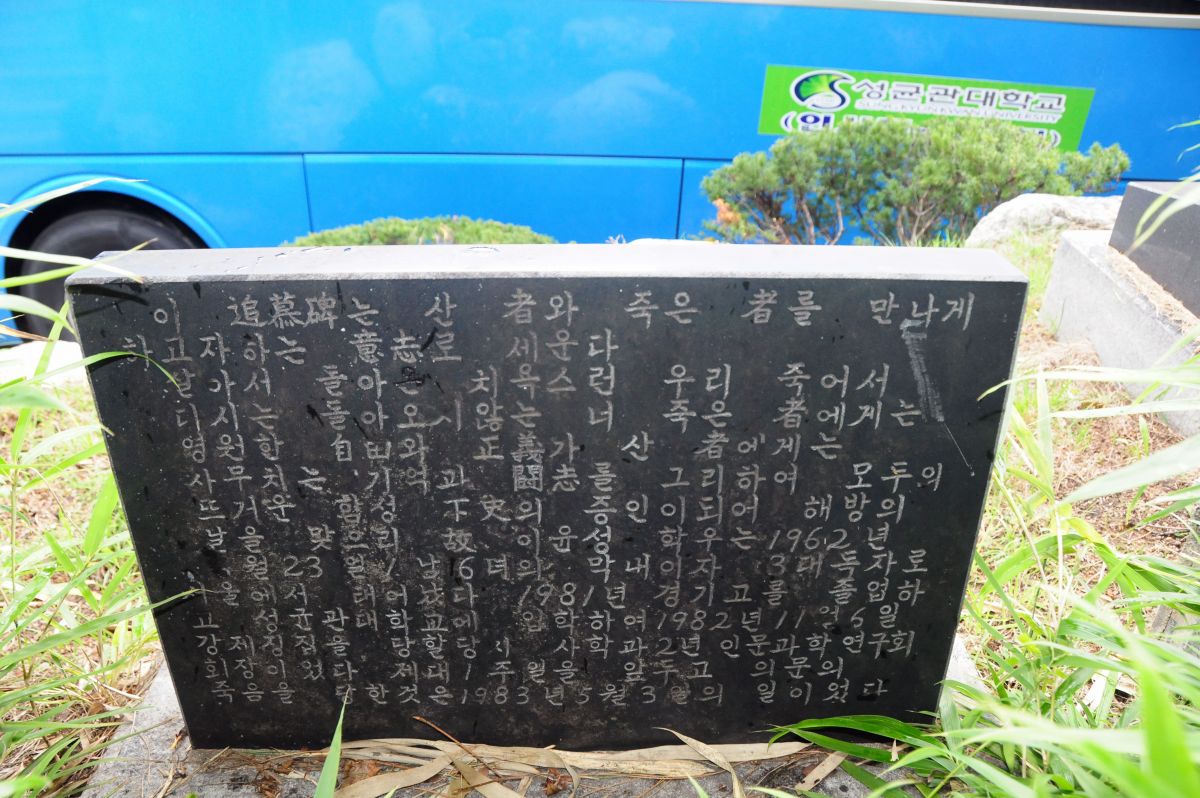 성균관대학교
SUNGKYUNKWAN UNIVERSITY
이 追慕碑는 산 者와 죽은 者를 만나게
하고자하는 意志로 세운다
살아서 돌아온 치욕스런 우리 죽어서
다시는 돌아오지 않는 너 죽은 者에게는
영원한 自由와 正義가 산 者에게는
사무치는 기억과 鬪志를 그리하여 모두의
뜨거운 함성 史의 증인이되어 해방의
날을 맞으리 故 이윤성 학우는 1962년
월 23일 1남 6녀의 막내이자 3대독자로
태어났다 1981년 경기고를 졸업하
고 성균관대학교에 입학하여 1982년 11월 6일
강제징집을 당할 당시 사학과 2년 인문과학연구회
회장이었다 제대 1주일을 앞두고 의문의
죽음을 당한것은 1983년 5월 3일의 일이었다